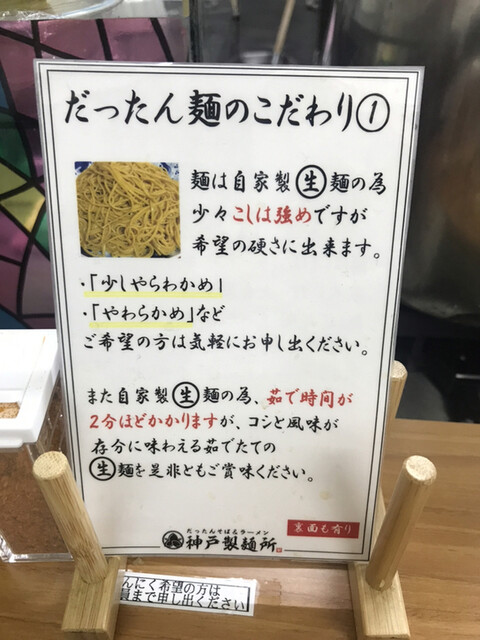 だったん麺のこだわり①
麺は自家製㊤麺の為
少々こしは強めですが
希望の硬さに出来ます。
・「少しやらわかめ」
・「やわらかめ」など
ご希望の方は気軽にお申し出ください。
また自家製生麺の為、茹で時間が
2分ほどかかりますが、コシと風味が
存分に味わえる茹でたての
生麺を是非ともご賞味ください。
裏面も有り
だったんそばらーめん
神戸製麺所
んにく希望の方は
員まで申し出ください